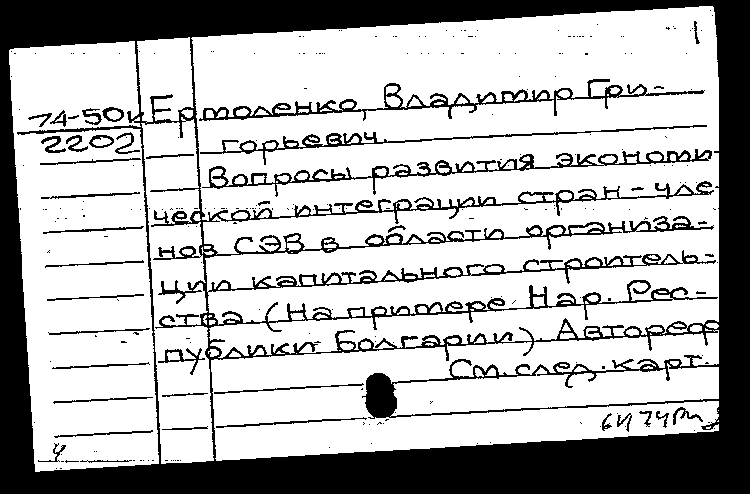 1
74-50к Ермоленко, Владимир Гри-
2202 горьевич.
Вопросы развития экономи
ческой интеграции стран-чле
нов СЭВ в области организа-
ции капитального строитель-
ства. (На примере Нар. Рес-
публики Болгарии). Автореф
См. след. карт.
4